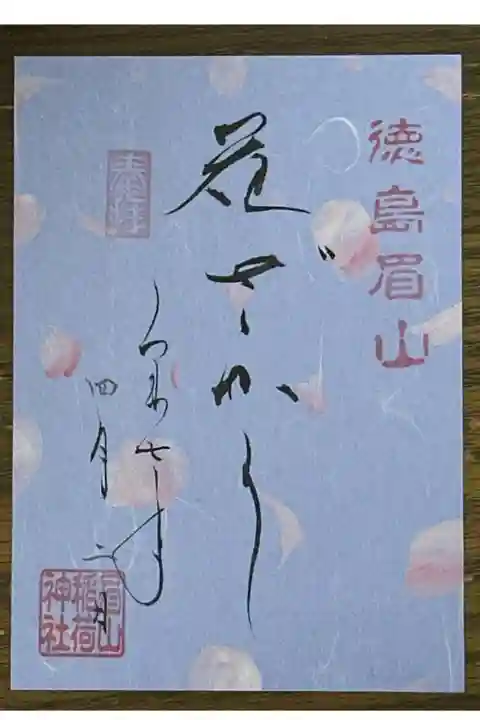 徳島眉山
花ざかり
奉拝
令和七年
四月二日
眉山稲荷神社